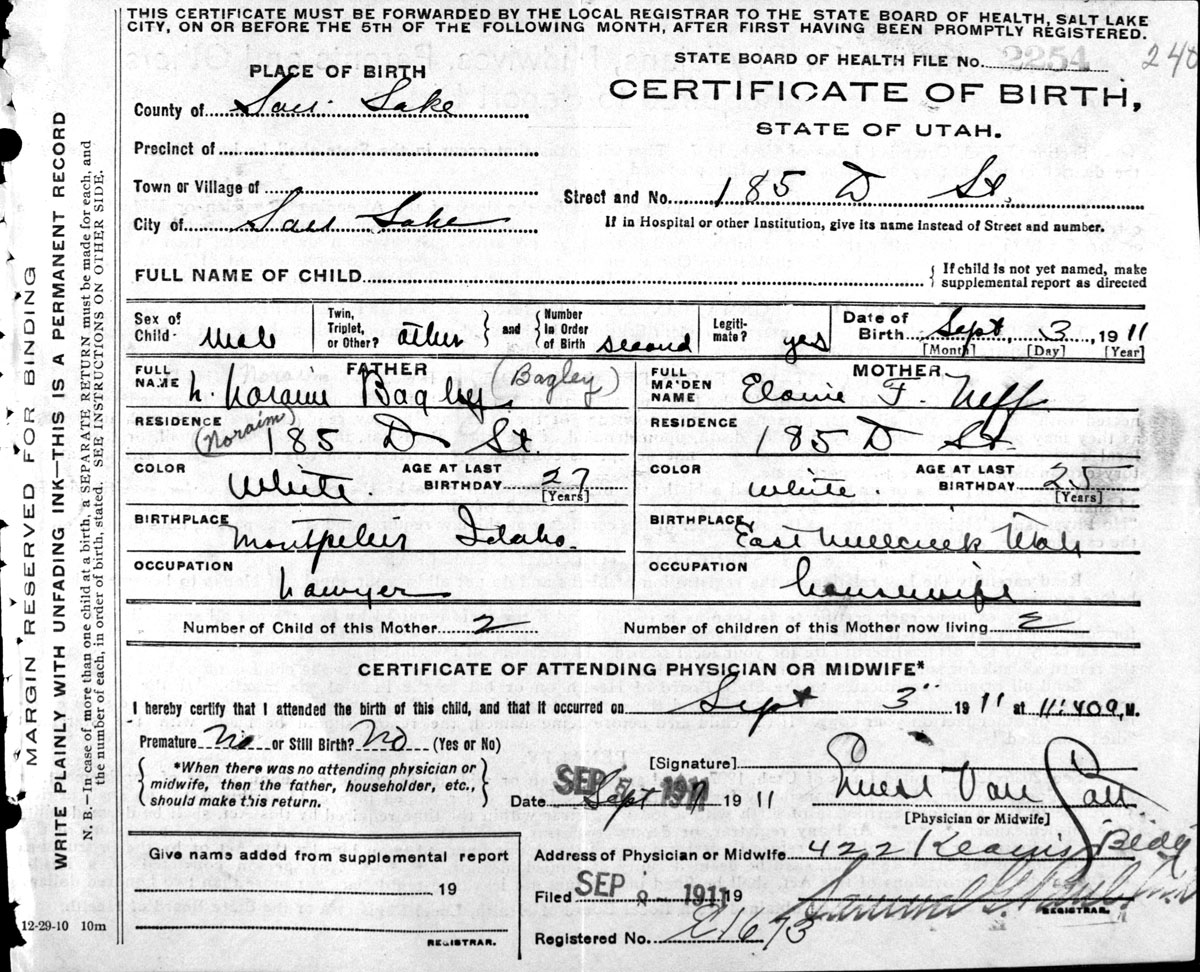 THIS CERTIFICATE MUST BE FORWARDED BY THE LOCAL REGISTRAR TO THE STATE BOARD OF HEALTH, SALT LAKE
CITY, ON OR BEFORE THE 5TH OF THE FOLLOWING MONTH, AFTER FIRST HAVING BEEN PROMPTLY REGISTERED.
STATE BOARD OF HEALTH FILE No. 2254 248
PLACE OF BIRTH
CERTIFICATE OF BIRTH,
County of Salt Lake
STATE OF UTAH.
Precinct of
Town or Village of
Street and No. 185 D St.
City of Salt Lake
If in Hospital or other Institution, give its name instead of Street and number.
FULL NAME OF CHILD
If child is not yet named, make
supplemental report as directed
Sex of Child - Male
Twin, Triplet, or Other? other
and
Number In Order of Birth second
Legiti-mate? yes
Date of Birth Sept. 3 1911
[Month] [Day] [Year]
FATHER
FULL NAME N. Noraim Bagley (Bagley)
MOTHER
FULL MAIDEN NAME Elaine F. Neff
RESIDENCE (Noraim) 185 D St.
RESIDENCE 185 D St.
COLOR White. AGE AT LAST BIRTHDAY 27 [Years]
COLOR White. AGE AT LAST BIRTHDAY 25 [Years]
BIRTHPLACE Montpelier Idaho.
BIRTHPLACE East Millcreek Utah
OCCUPATION Lawyer
OCCUPATION Housewife
Number of Child of this Mother 2
Number of children of this Mother now living 2
CERTIFICATE OF ATTENDING PHYSICIAN OR MIDWIFE*
I hereby certify that I attended the birth of this child, and that it occurred on Sept 3 1911 at 11:40 a, M.
Premature No or Still Birth? No (Yes or No)
*When there was no attending physician or
midwife, then the father, householder, etc.,
should make this return.
[Signature]
SEP 1911
Date Sept 1911
[Physician or Midwife]
Give name added from supplemental report
19
REGISTRAR.
Address of Physician or Midwife 422 Kearns Bldg
SEP 1911
Filed 19
REGISTRAR.
Registered No.
12-29-10 10m
MARGIN RESERVED FOR BINDING
WRITE PLAINLY WITH UNFADING INK—THIS IS A PERMANENT RECORD
N. B.—In case of more than one child at a birth, a SEPARATE RETURN must be made for each, and
the number of each, in order of birth, stated. SEE INSTRUCTIONS ON OTHER SIDE.